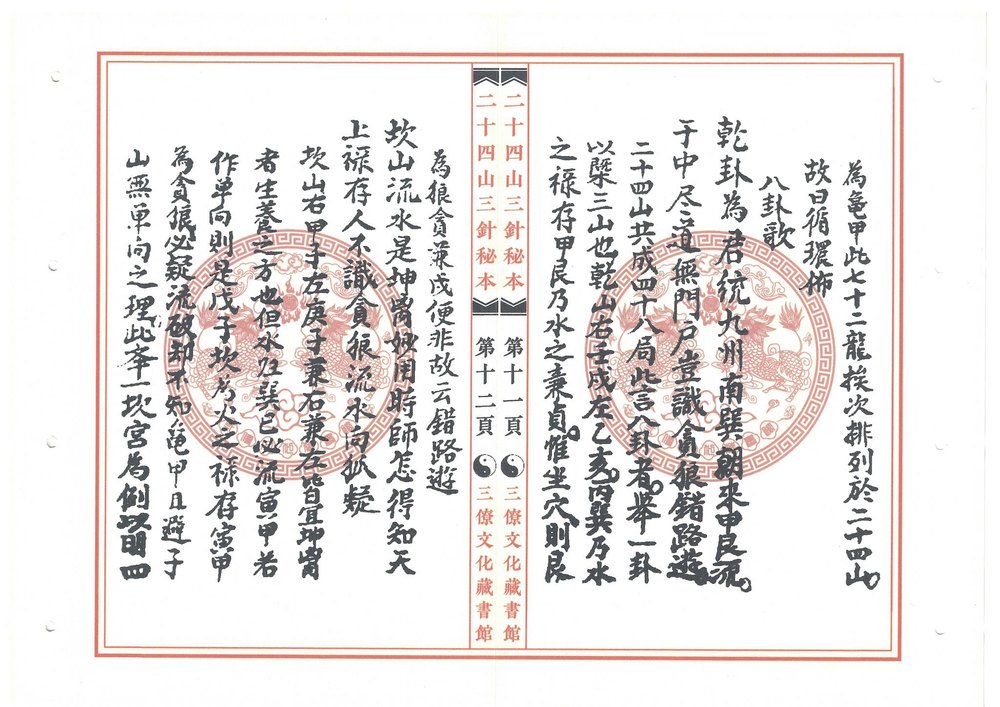 為龜甲此七十二龍挨次排列於二十四山
故曰循環佈
八卦歌
乾卦為君統九州南巽朝來甲艮流
于中尽道無門户豈識貪狼錯路遊
二十四山共成四十八局此言八卦者舉一卦
以槩三山也乾山右壬戌左乙亥丙巽乃水
之禄存甲艮乃水之廉貞惟坐穴則艮
二十四山三針秘本
第十一頁
三僚文化藏書館
二十四山三針秘本
第十二頁
三僚文化藏書館
為狼貪兼戌便非故云錯路遊
坎山流水是坤甯妙用時師怎得知天
上禄存人不識貪狼流水向狐疑
坎山右甲子左庚子兼右兼左皆宜坤甯
者生養之方也但水在巽巳必流寅甲若
作単向則是戊子坎為火之禄存寅甲
為貪狼必疑流破却不知龜甲且避子
山無単向之理此奉一坎宮為例以明四